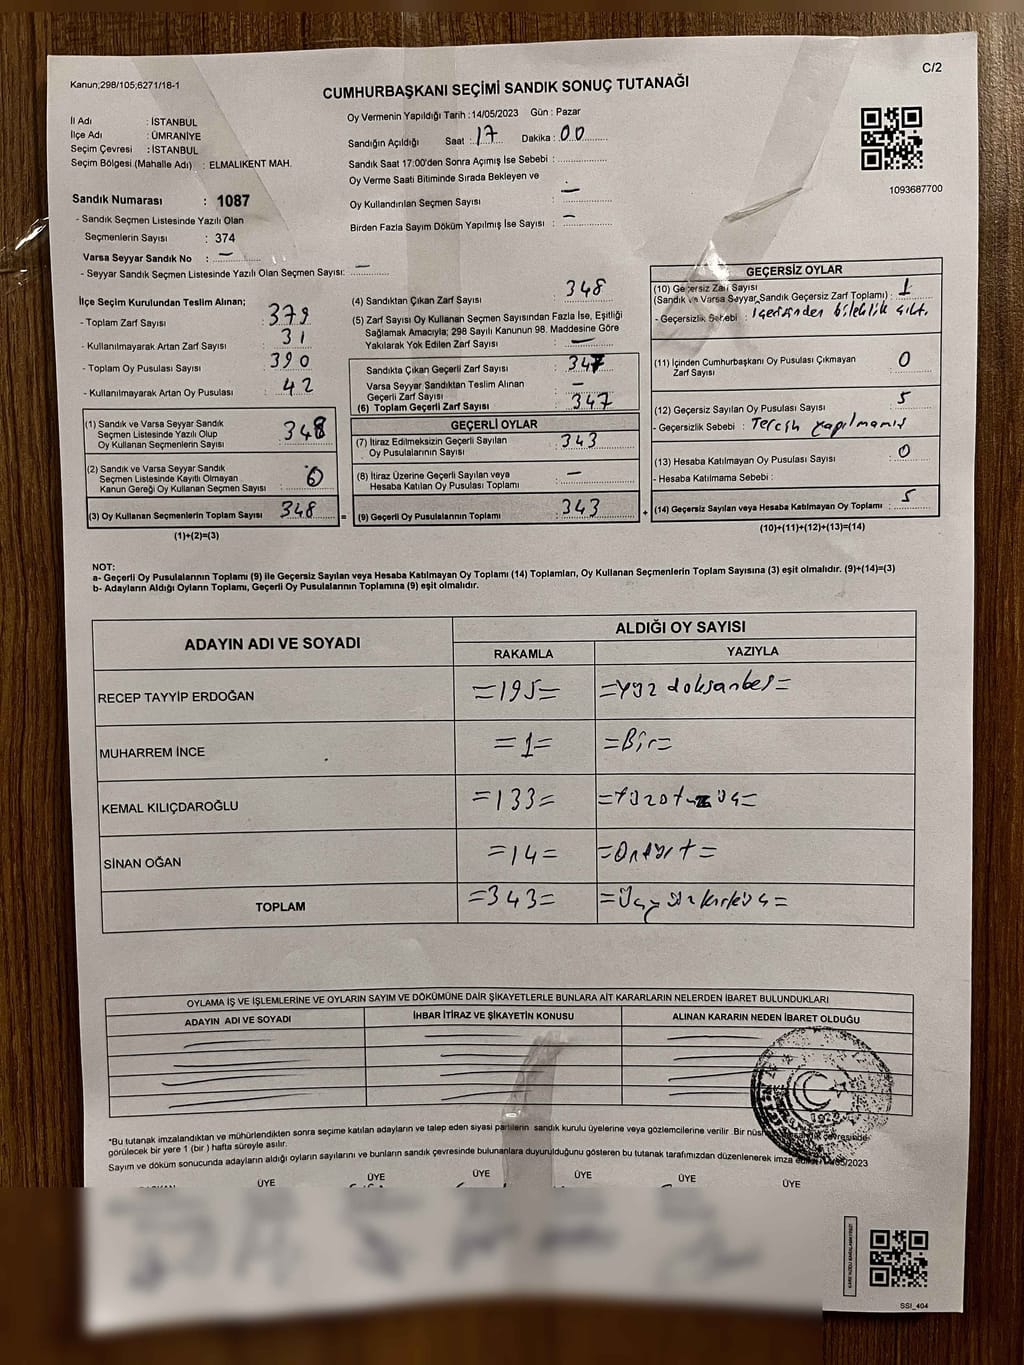 Kanun;298/105;6271/18-1
C/2
CUMHURBAŞKANI SEÇİMİ SANDIK SONUÇ TUTANAĞI
İl Adı : İSTANBUL
İlçe Adı : ÜMRANİYE
Seçim Çevresi : İSTANBUL
Seçim Bölgesi (Mahalle Adı) : ELMALIKENT MAH.
Oy Vermenin Yapıldığı Tarih :14/05/2023 Gün : Pazar
Sandığın Açıldığı Saat : 17 Dakika : 00
Sandık Saat 17:00'den Sonra Açımış İse Sebebi :
Oy Verme Saati Bitiminde Sırada Bekleyen ve
Oy Kullandırılan Seçmen Sayısı : —
Birden Fazla Sayım Döküm Yapılmış İse Sayısı : —
1093687700
Sandık Numarası : 1087
- Sandık Seçmen Listesinde Yazılı Olan
Seçmenlerin Sayısı : 374
Varsa Seyyar Sandık No : —
- Seyyar Sandık Seçmen Listesinde Yazılı Olan Seçmen Sayısı: —
İlçe Seçim Kurulundan Teslim Alınan;
- Toplam Zarf Sayısı : 379
- Kullanılmayarak Artan Zarf Sayısı : 31
- Toplam Oy Pusulası Sayısı : 390
- Kullanılmayarak Artan Oy Pusulası : 42
(1) Sandık ve Varsa Seyyar Sandık
Seçmen Listesinde Yazılı Olup
Oy Kullanan Seçmenlerin Sayısı : 348
(2) Sandık ve Varsa Seyyar Sandık
Seçmen Listesinde Kayıtlı Olmayan
Kanun Gereği Oy Kullanan Seçmen Sayısı : 0
(3) Oy Kullanan Seçmenlerin Toplam Sayısı : 348
(1)+(2)=(3)
(4) Sandıktan Çıkan Zarf Sayısı : 348
(5) Zarf Sayısı Oy Kullanan Seçmen Sayısından Fazla İse, Eşitliği
Sağlamak Amacıyla; 298 Sayılı Kanunun 98. Maddesine Göre
Yakılarak Yok Edilen Zarf Sayısı : —
Sandıkta Çıkan Geçerli Zarf Sayısı : 347
Varsa Seyyar Sandıktan Teslim Alınan
Geçerli Zarf Sayısı : —
(6) Toplam Geçerli Zarf Sayısı : 347
GEÇERLİ OYLAR
(7) İtiraz Edilmeksizin Geçerli Sayılan
Oy Pusulalarının Sayısı : 343
(8) İtiraz Üzerine Geçerli Sayılan veya
Hesaba Katılan Oy Pusulası Toplamı : —
= (9) Geçerli Oy Pusulalarının Toplamı : 343
GEÇERSİZ OYLAR
(10) Geçersiz Zarf Sayısı
(Sandık ve Varsa Seyyar Sandık Geçersiz Zarf Toplamı) : 1
- Geçersizlik Sebebi : İçerisinden bileklik çıktı.
(11) İçinden Cumhurbaşkanı Oy Pusulası Çıkmayan
Zarf Sayısı : 0
(12) Geçersiz Sayılan Oy Pusulası Sayısı : 5
- Geçersizlik Sebebi : Tercih yapılmamış
(13) Hesaba Katılmayan Oy Pusulası Sayısı : 0
- Hesaba Katılmama Sebebi :
+ (14) Geçersiz Sayılan veya Hesaba Katılmayan Oy Toplamı : 5
(10)+(11)+(12)+(13)=(14)
NOT:
a- Geçerli Oy Pusulalarının Toplamı (9) ile Geçersiz Sayılan veya Hesaba Katılmayan Oy Toplamı (14) Toplamları, Oy Kullanan Seçmenlerin Toplam Sayısına (3) eşit olmalıdır. (9)+(14)=(3)
b- Adayların Aldığı Oyların Toplamı, Geçerli Oy Pusulalarının Toplamına (9) eşit olmalıdır.
ADAYIN ADI VE SOYADI
ALDIĞI OY SAYISI
RAKAMLA YAZIYLA
RECEP TAYYİP ERDOĞAN =195= =Yüz doksanbeş=
MUHARREM İNCE =1= =Bir=
KEMAL KILIÇDAROĞLU =133= =Yüzotuzüç=
SİNAN OĞAN =14= =Ondört=
TOPLAM =343= =Üçyüzkırküç=
OYLAMA İŞ VE İŞLEMLERİNE VE OYLARIN SAYIM VE DÖKÜMÜNE DAİR ŞİKAYETLERLE BUNLARA AİT KARARLARIN NELERDEN İBARET BULUNDUKLARI
ADAYIN ADI VE SOYADI İHBAR İTİRAZ VE ŞİKAYETİN KONUSU ALINAN KARARIN NEDEN İBARET OLDUĞU
*Bu tutanak imzalandıktan ve mühürlendikten sonra seçime katılan adayların ve talep eden siyasi partilerin sandık kurulu üyelerine veya gözlemcilerine verilir .Bir çevresinde
görülecek bir yere 1 (bir ) hafta süreyle asılır.
Sayım ve döküm sonucunda adayların aldığı oyların sayılarını ve bunların sandık çevresinde bulunanlara duyurulduğunu gösteren bu tutanak tarafımızdan düzenlenerek imza
ÜYE ÜYE ÜYE ÜYE ÜYE ÜYE
SSI_404